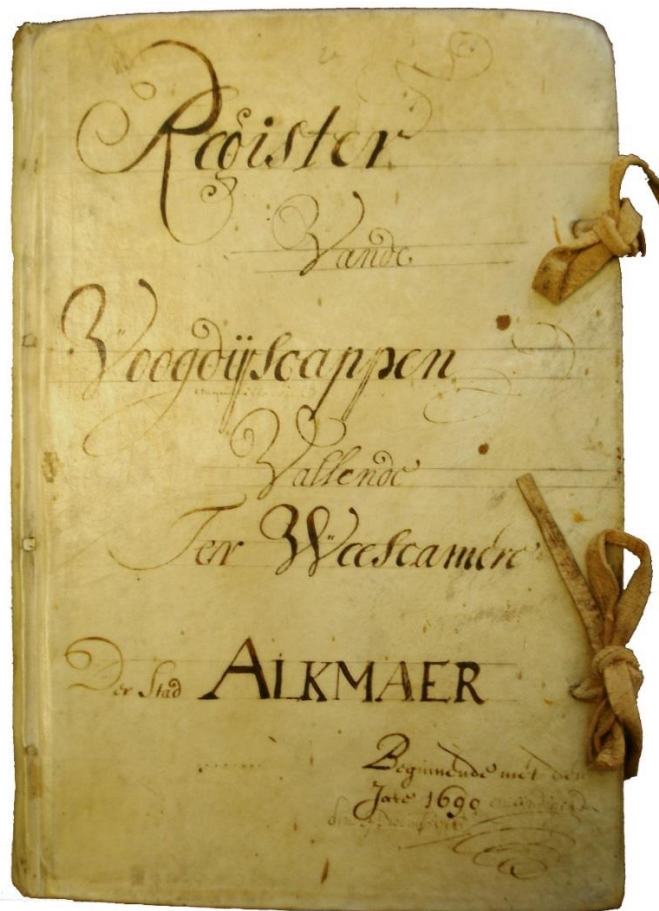 Register
Vande
Voogdijscappen
Vallende
Ter Weescamere
Der Stad ALKMAER
Beginnende met den
Jare 1690